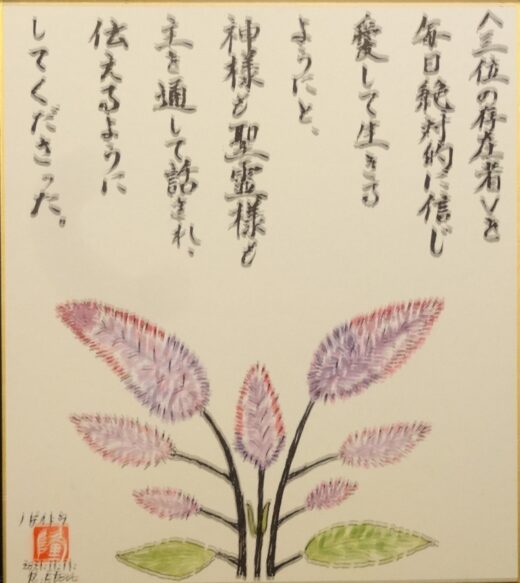 〈三位の存在者〉を
毎日絶対的に信じ
愛して生きる
ようにと、
神様も聖霊様も
主を通して話され、
伝えるように
してくださった。
ノゲイトウ